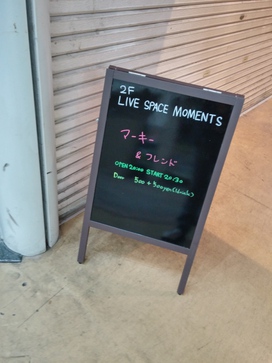 2F
LIVE SPACE MOMENTS
マーキー
& フレンド
OPEN 20:00 START 20:30
500 + 500yen